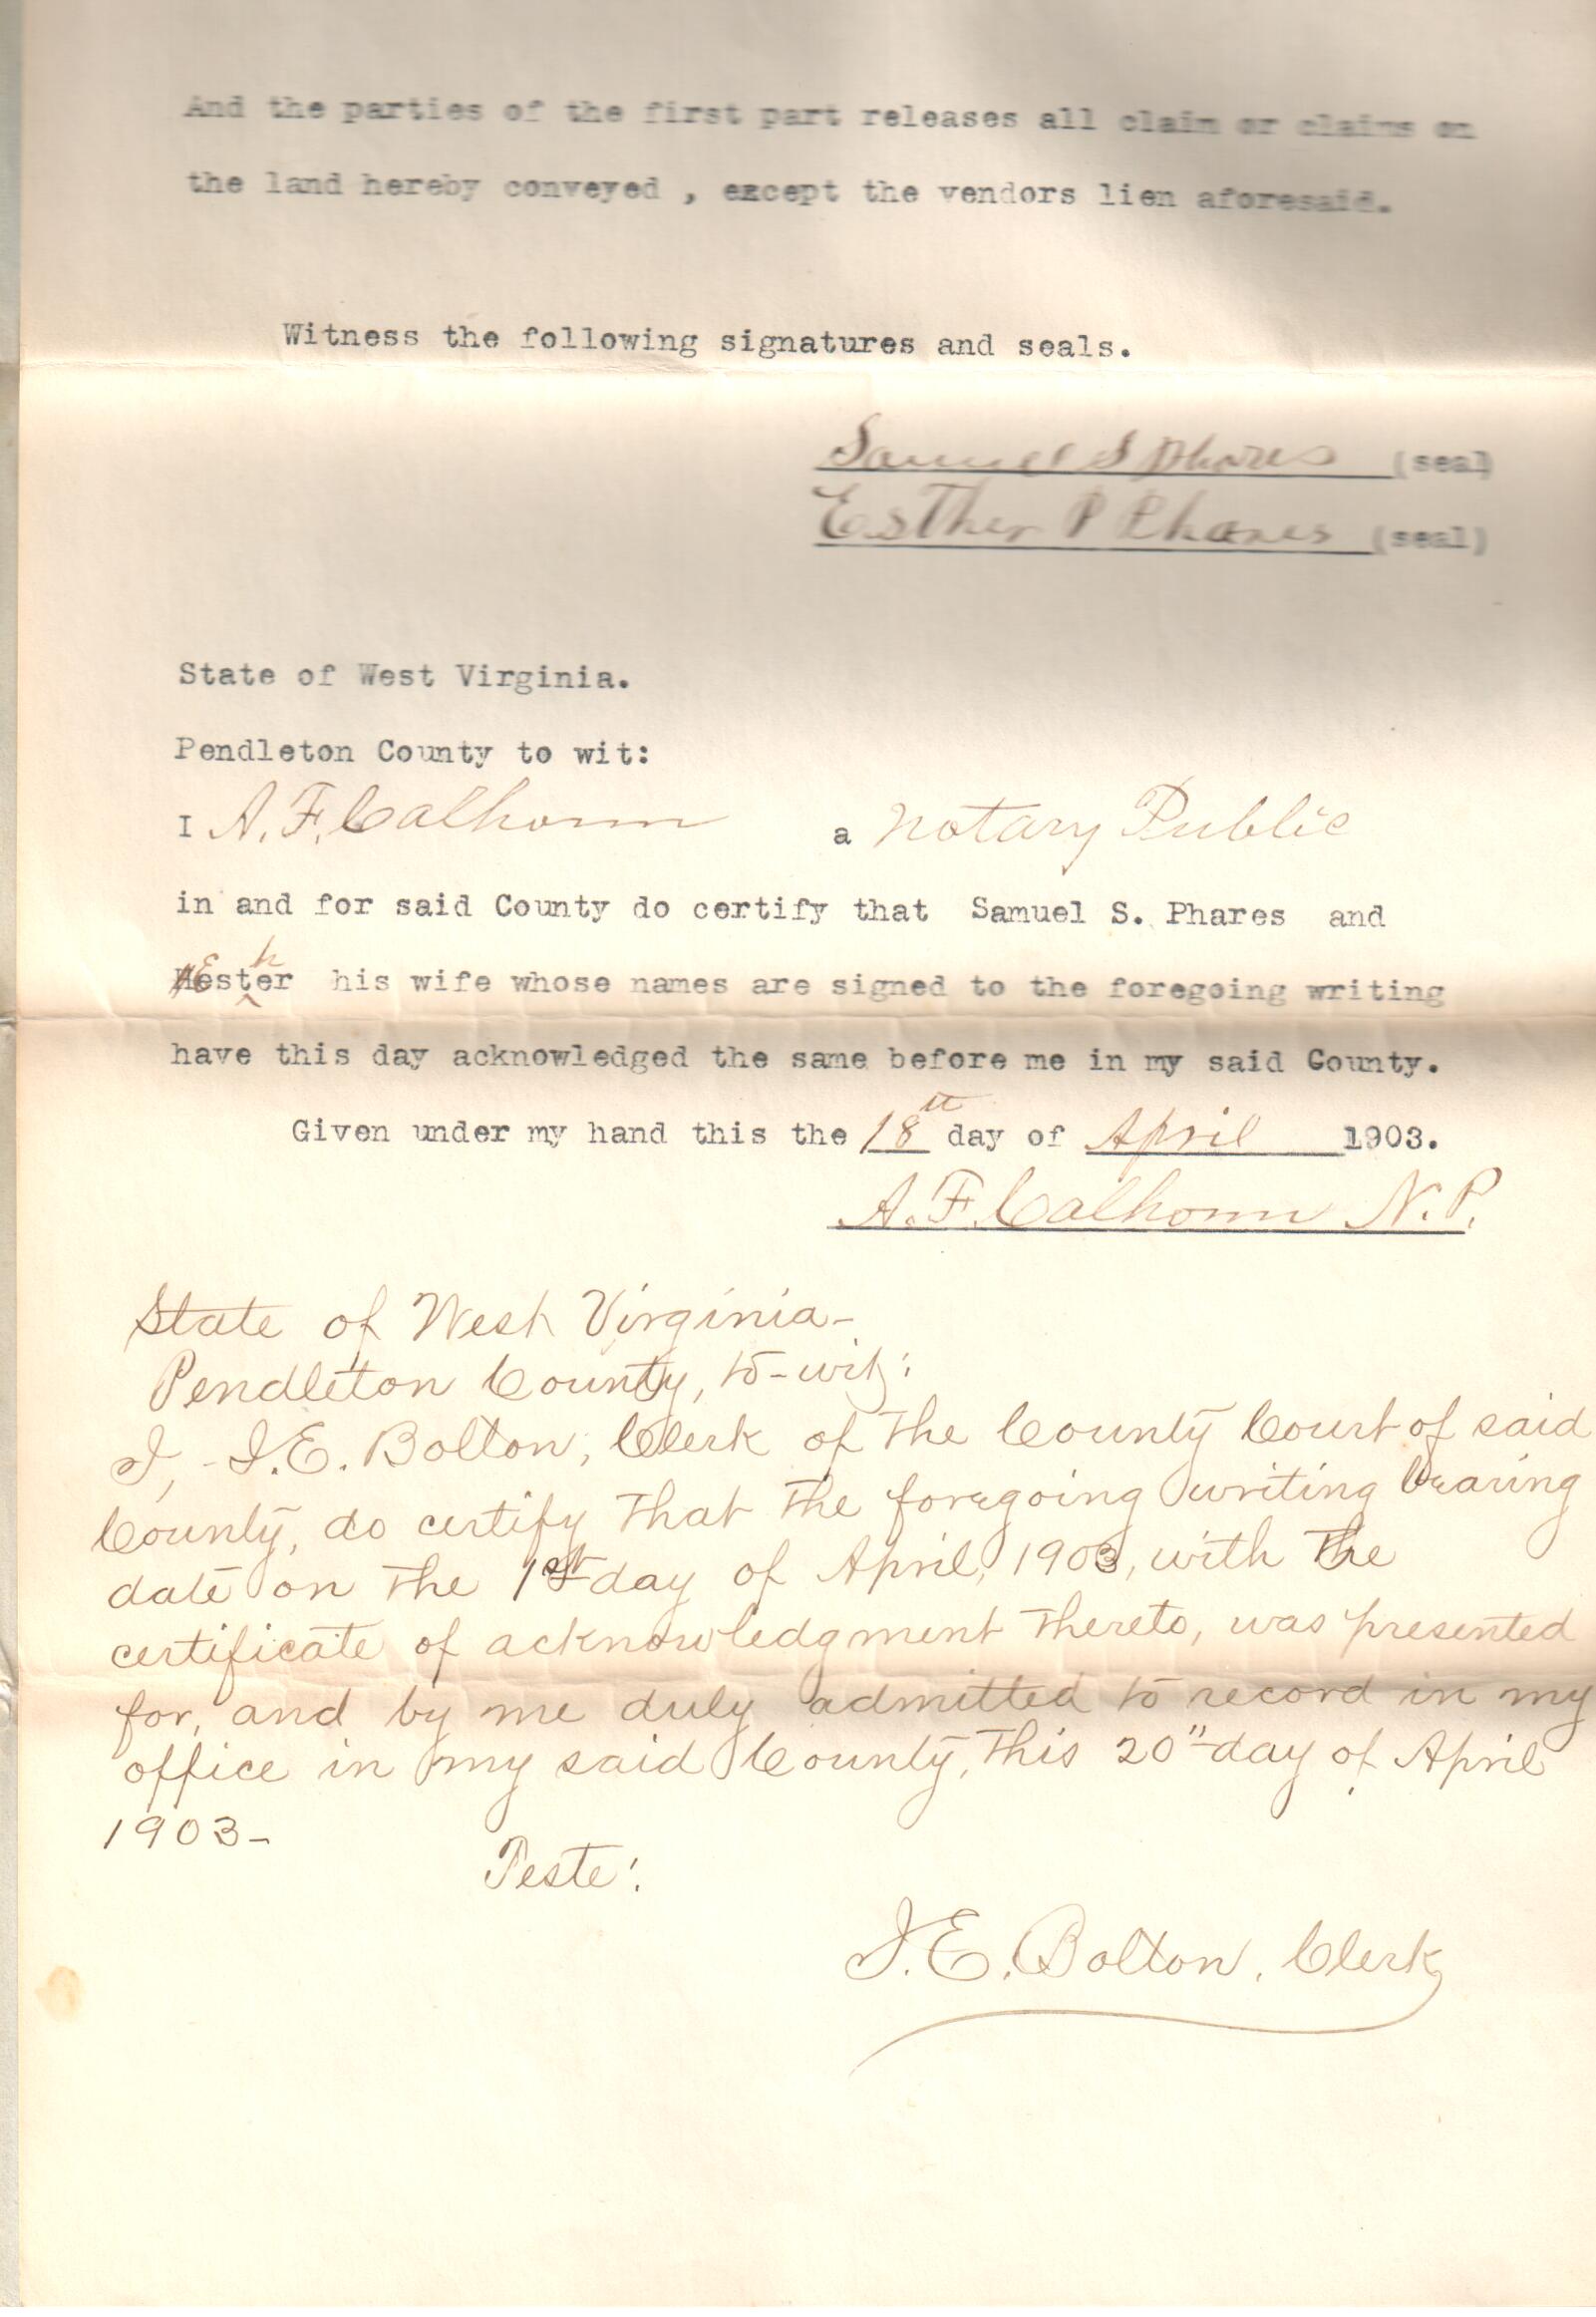 And the parties of the first part releases all claim or claims on
the land hereby conveyed , except the vendors lien aforesaid.
Witness the following signatures and seals.
Samuel S Phares (seal)
Esther P Phares (seal)
State of West Virginia.
Pendleton County to wit:
I A. F. Calhoun a Notary Public
in and for said County do certify that Samuel S. Phares and
Esther his wife whose names are signed to the foregoing writing
have this day acknowledged the same before me in my said County.
Given under my hand this the 18th day of April 1903.
A. F. Calhoun N. P.
State of West Virginia-
Pendleton County, to-wit:
I, - I. E. Bolton, Clerk of the County Court of said
County, do certify that the foregoing writing bearing
date on the 1st day of April, 1903, with the
certificate of acknowledgment thereto, was presented
for, and by me duly admitted to record in my
office in my said County, this 20" day of April
1903-
Teste:
I. E. Bolton, Clerk